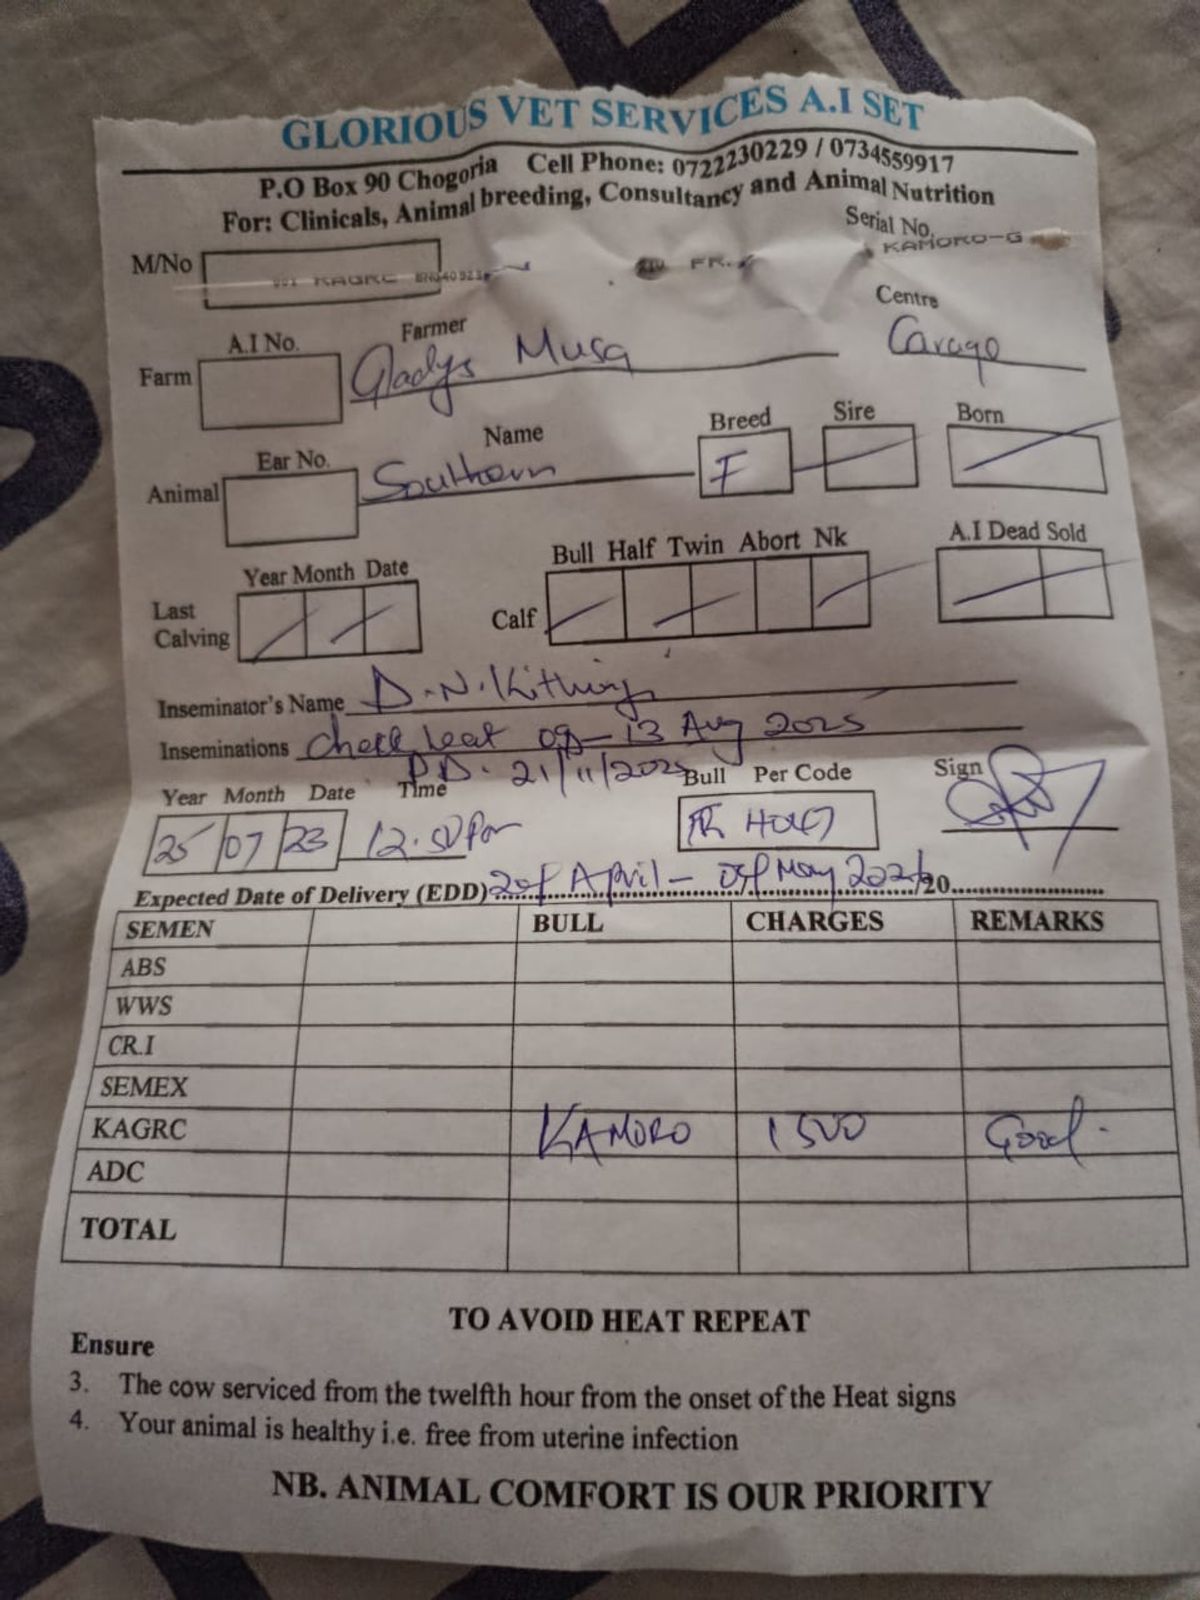 GLORIOUS VET SERVICES A.I SET
P.O Box 90 Chogoria Cell Phone: 0722230229 / 0734559917
For: Clinicals, Animal breeding, Consultancy and Animal Nutrition
M/No KAGRC FR. Serial No. KAMORO-G
A.I No. Farmer Centre
Farm Gladys Musa
Ear No. Name Breed Sire Born
Animal Southern F
Year Month Date Bull Half Twin Abort Nk A.I Dead Sold
Last Calving Calf
Inseminator's Name D.N.
Inseminations Check heat 09-13 Aug 2025
P.D. 21/11/2025
Year Month Date Time Bull Per Code Sign
25 07 23 12.50pm FR
Expected Date of Delivery (EDD) April - May 2026/20
SEMEN BULL CHARGES REMARKS
ABS
WWS
CR.I
SEMEX
KAGRC KAMORO 1500 Good.
ADC
TOTAL
TO AVOID HEAT REPEAT
Ensure
3. The cow serviced from the twelfth hour from the onset of the Heat signs
4. Your animal is healthy i.e. free from uterine infection
NB. ANIMAL COMFORT IS OUR PRIORITY